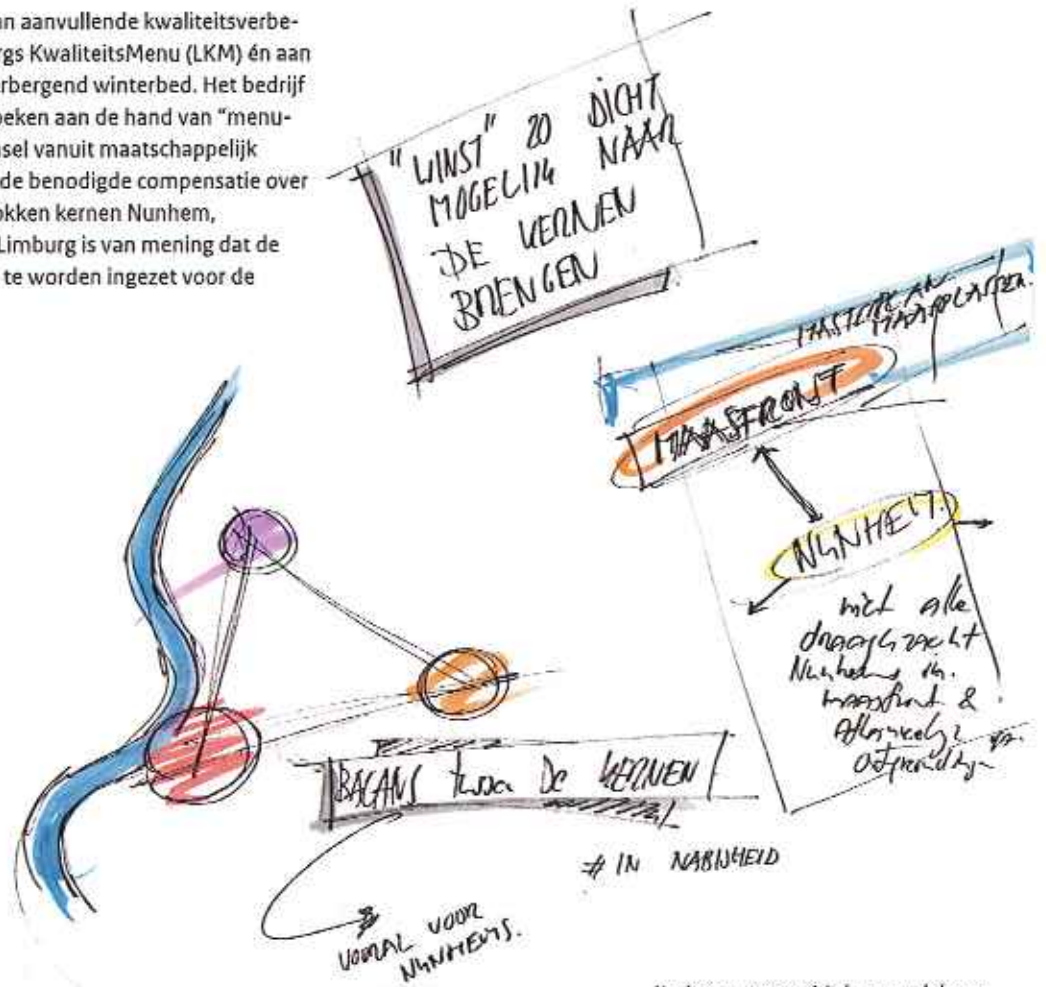 an aanvullende kwaliteitsverbe-
rgs KwaliteitsMenu (LKM) én aan
rbergend winterbed. Het bedrijf
oeken aan de hand van “menu-
sel vanuit maatschappelijk
de benodigde compensatie over
okken kernen Nunhem,
Limburg is van mening dat de
te worden ingezet voor de
"WINST" ZO DICHT
MOGELIJK NAAR
DE KERNEN
BRENGEN
MAASPLASSEN.
MAASFRONT
NUNHEM.
niet alle
draagkracht
Nunhems in
maasfront &
BALANS tussen DE KERNEN
# IN NABIJHEID
VOORAL VOOR
NUNHEMS.